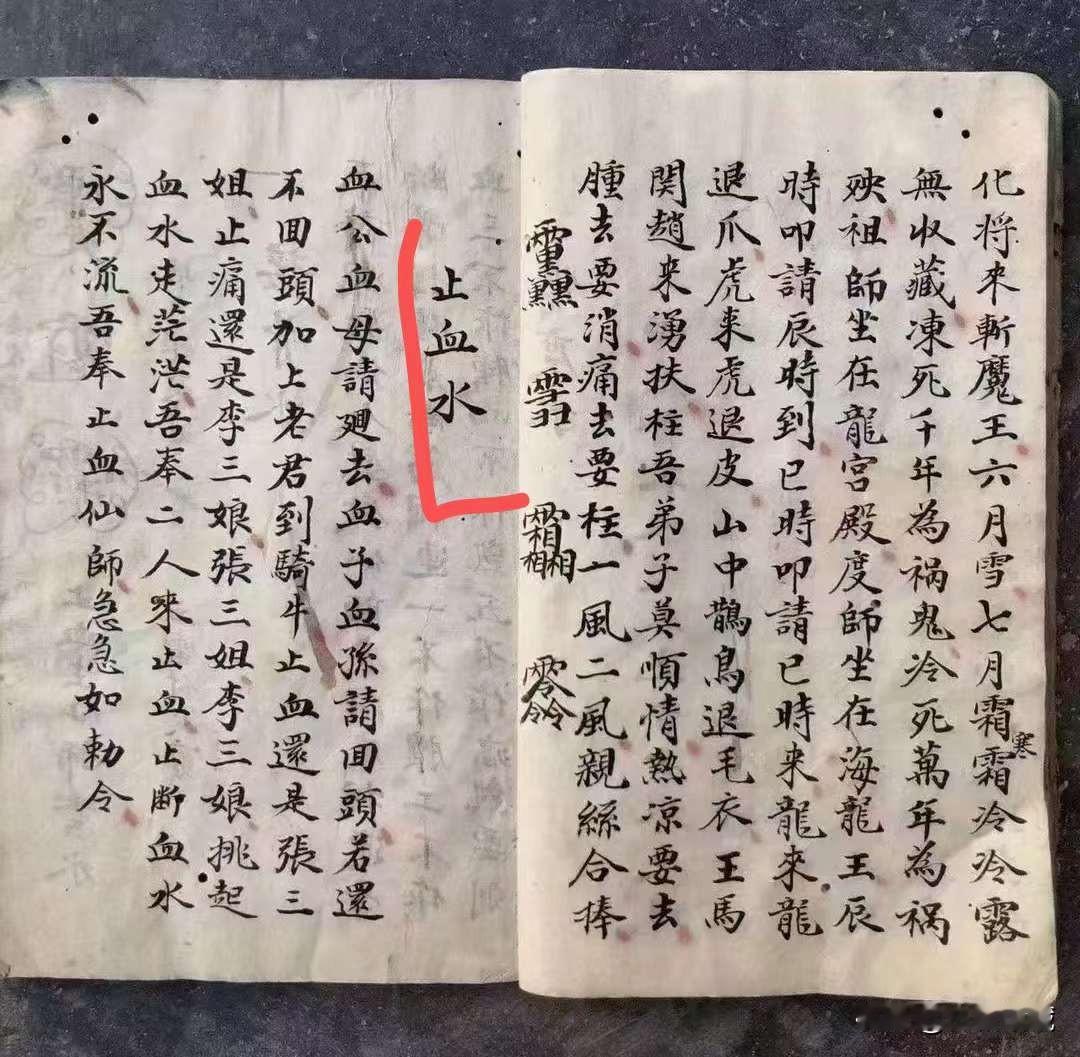 化將来斬魔王六月雪七月霜霜冷冷露
寒
無收藏凍死千年為禍鬼冷死萬年為禍
殃祖師坐在龍宮殿度師坐在海龍王辰
時叩請辰時到巳時叩請巳時来龍来龍
退爪虎来虎退皮山中鵲鳥退毛衣王馬
関趙来湧扶柱吾弟子莫順情熱凉要去
腫去要消痛去要柱一風二風親絲合捧
雪
止血水
血公血母請廻去血子血孫請回頭若還
不回頭加上老君到騎牛止血還是張三
姐止痛還是李三娘張三姐李三娘挑起
血水走茫茫吾奉二人来止血止断血水
永不流吾奉止血仙師急急如勅令